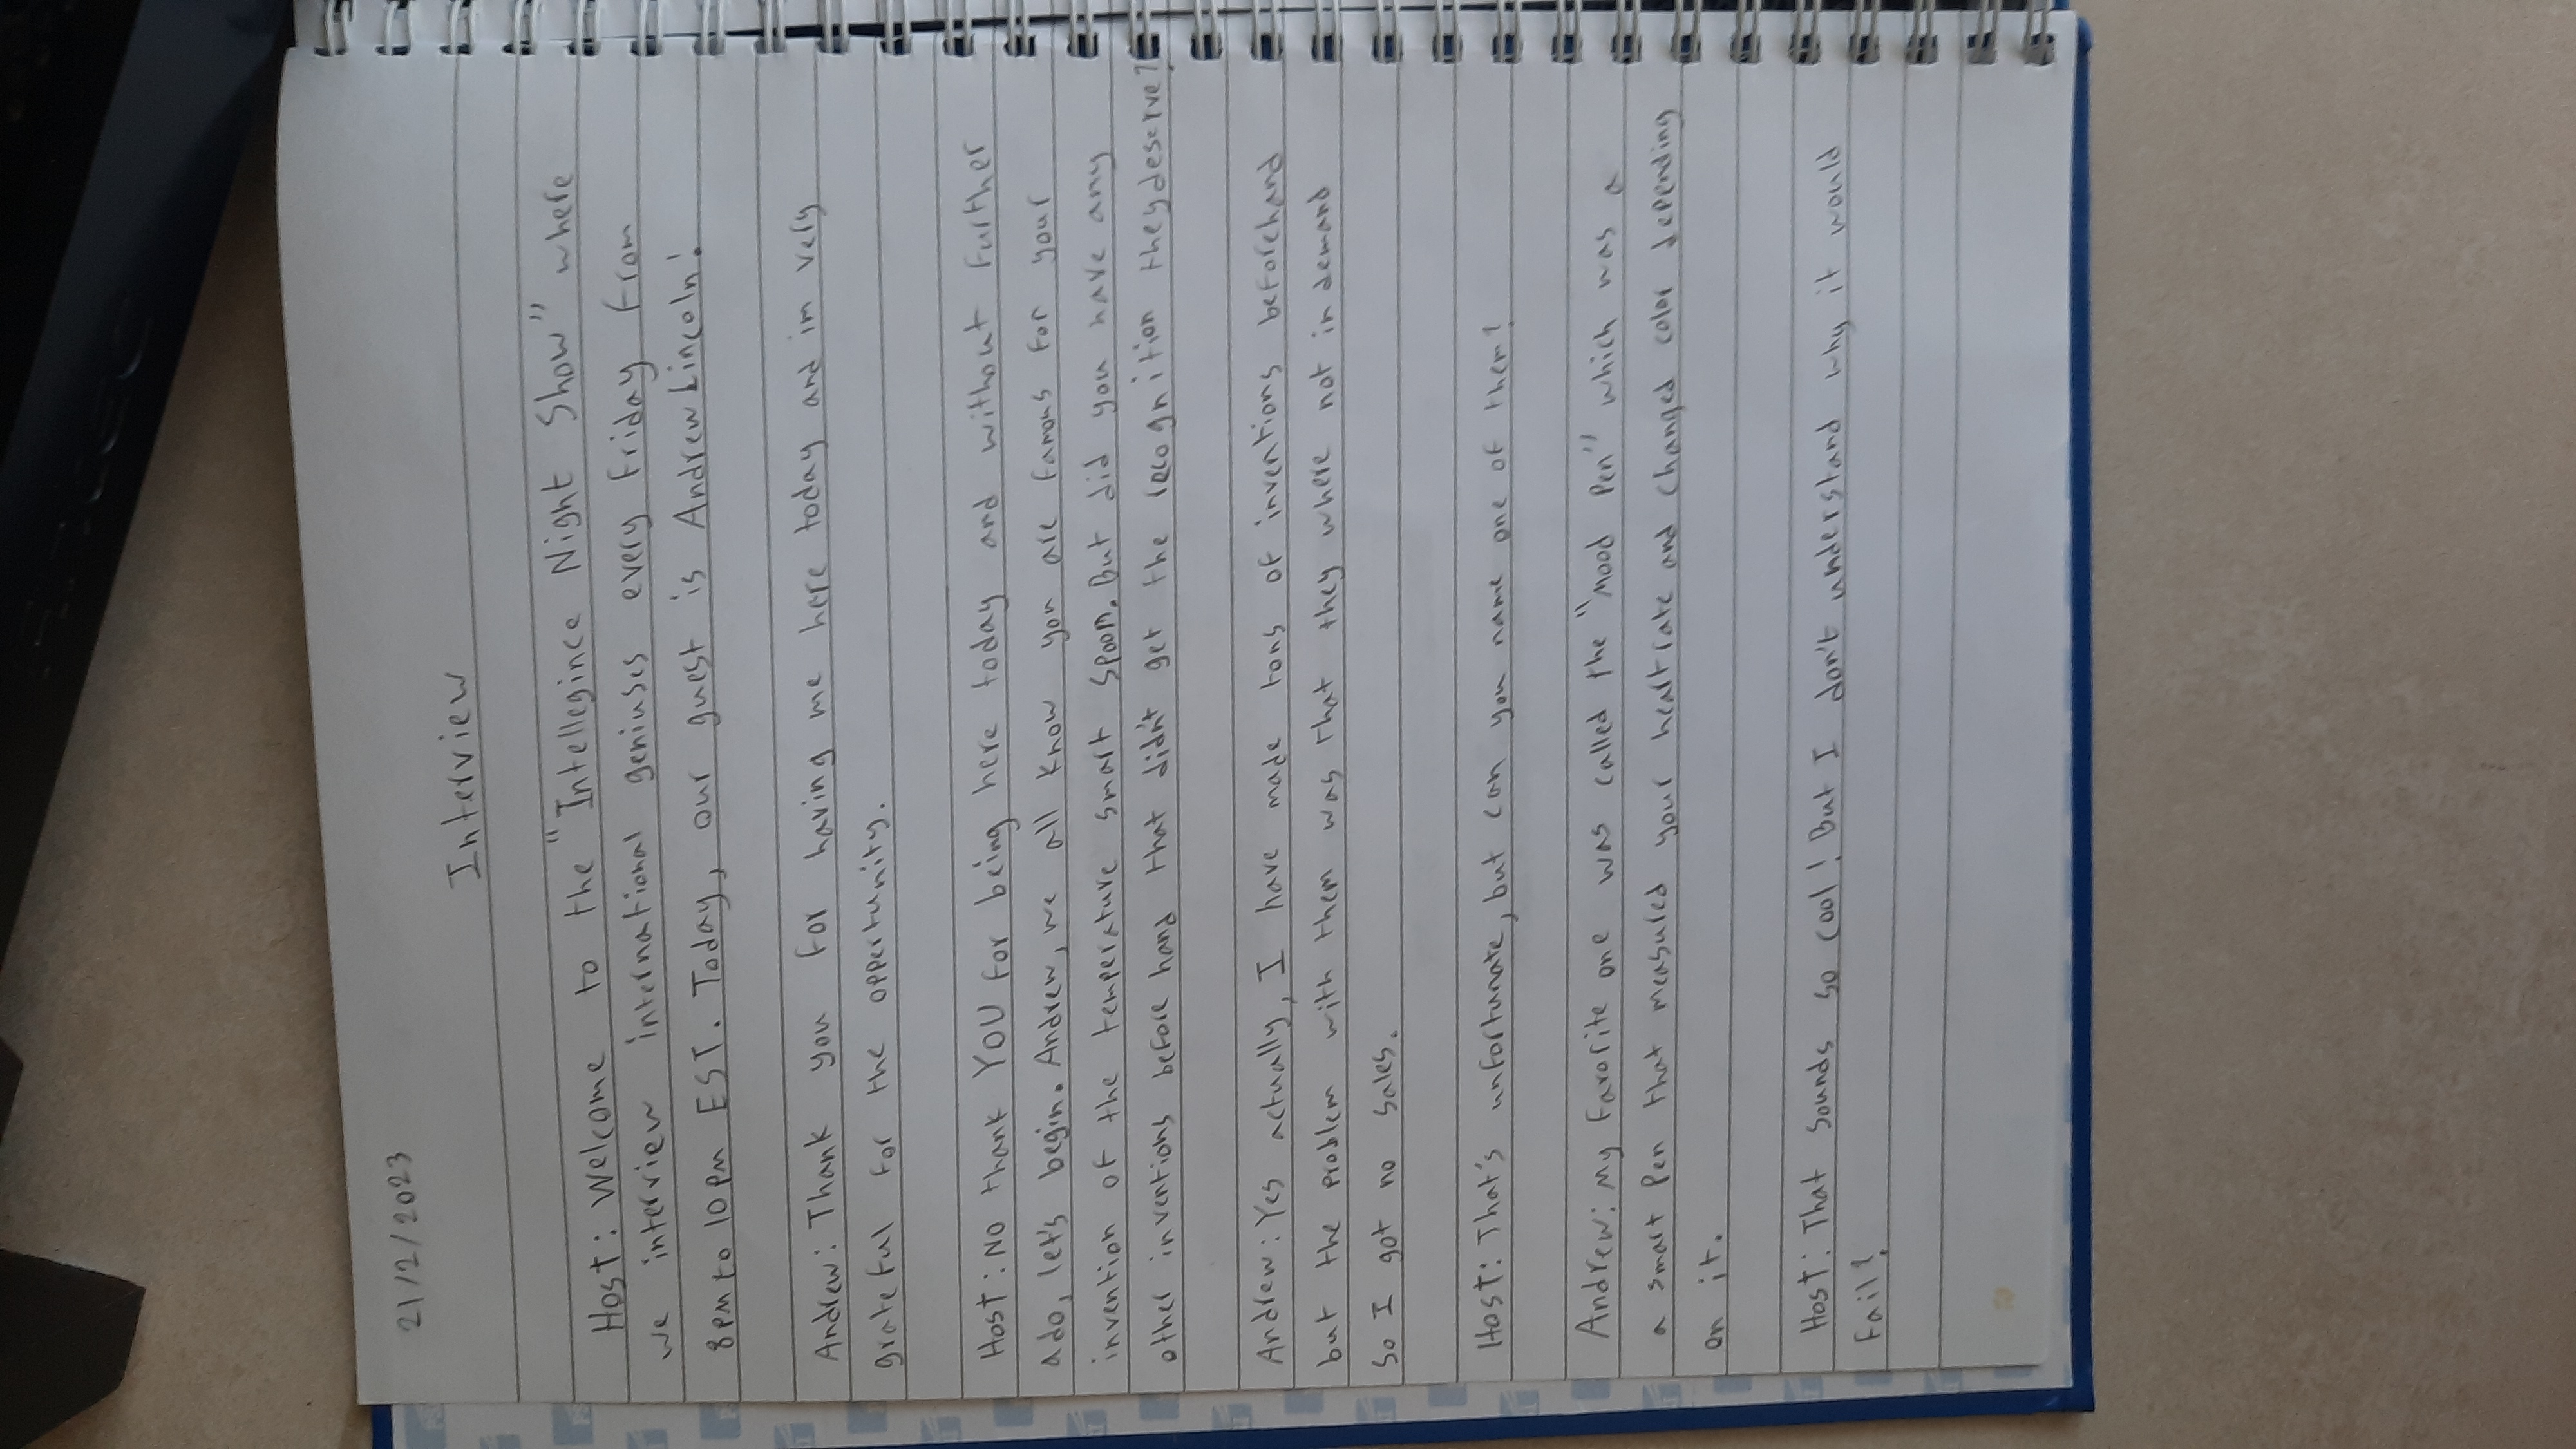 21/2/2023
Interview
Host: Welcome to the "Intellegince Night Show" where
we interview international geniuses every Friday from
8pm to 10pm EST. Today, our guest is Andrew Lincoln!
Andrew: Thank you for having me here today and im very
grateful for the oppertunity.
Host: No thank YOU for being here today and without further
ado, let's begin. Andrew, we all know you are famous for your
invention of the temperature smart spoon. But did you have any
other inventions before hand that didn't get the recognition they deserve?
Andrew: Yes actually, I have made tons of inventions beforehand
but the problem with them was that they where not in demand
so I got no sales.
Host: That's unfortunate, but can you name one of them?
Andrew: My favorite one was called the "Mood Pen" which was a
a smart pen that measured your heart rate and changed color depending
on it.
Host: That sounds so cool! But I don't understand why it would
fail?